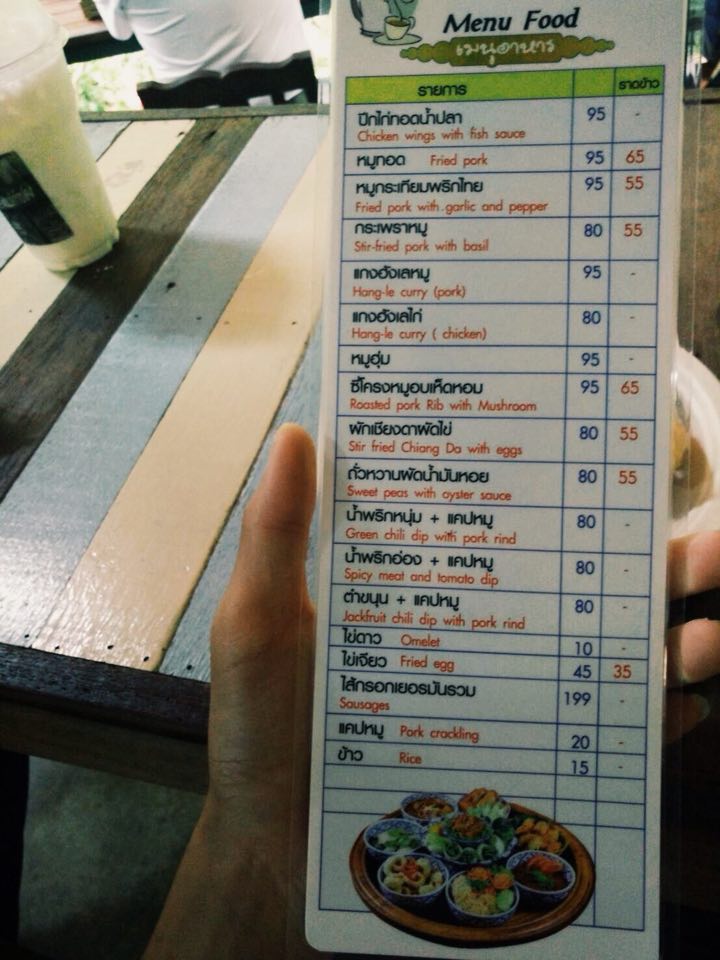 Menu Food
เมนูอาหาร
รายการ ราดข้าว
ปีกไก่ทอดน้ำปลา 95 -
Chicken wings with fish sauce
หมูทอด Fried pork 95 65
หมูกระเทียมพริกไทย 95 55
Fried pork with garlic and pepper
กระเพราหมู 80 55
Stir-fried pork with basil
แกงฮังเลหมู 95 -
Hang-le curry (pork)
แกงฮังเลไก่ 80 -
Hang-le curry ( chicken)
หมูฮุ่ม 95 -
ซี่โครงหมูอบเห็ดหอม 95 65
Roasted pork Rib with Mushroom
ผักเชียงดาผัดไข่ 80 55
Stir fried Chiang Da with eggs
ถั่วหวานผัดน้ำมันหอย 80 55
Sweet peas with oyster sauce
น้ำพริกหนุ่ม + แคปหมู 80 -
Green chili dip with pork rind
น้ำพริกอ่อง + แคปหมู 80 -
Spicy meat and tomato dip
ตำขนุน + แคปหมู 80 -
Jackfruit chili dip with pork rind
ไข่ดาว Omelet 10 -
ไข่เจียว Fried egg 45 35
ไส้กรอกเยอรมันรวม 199 -
Sausages
แคปหมู Pork crackling 20 -
ข้าว Rice 15 -